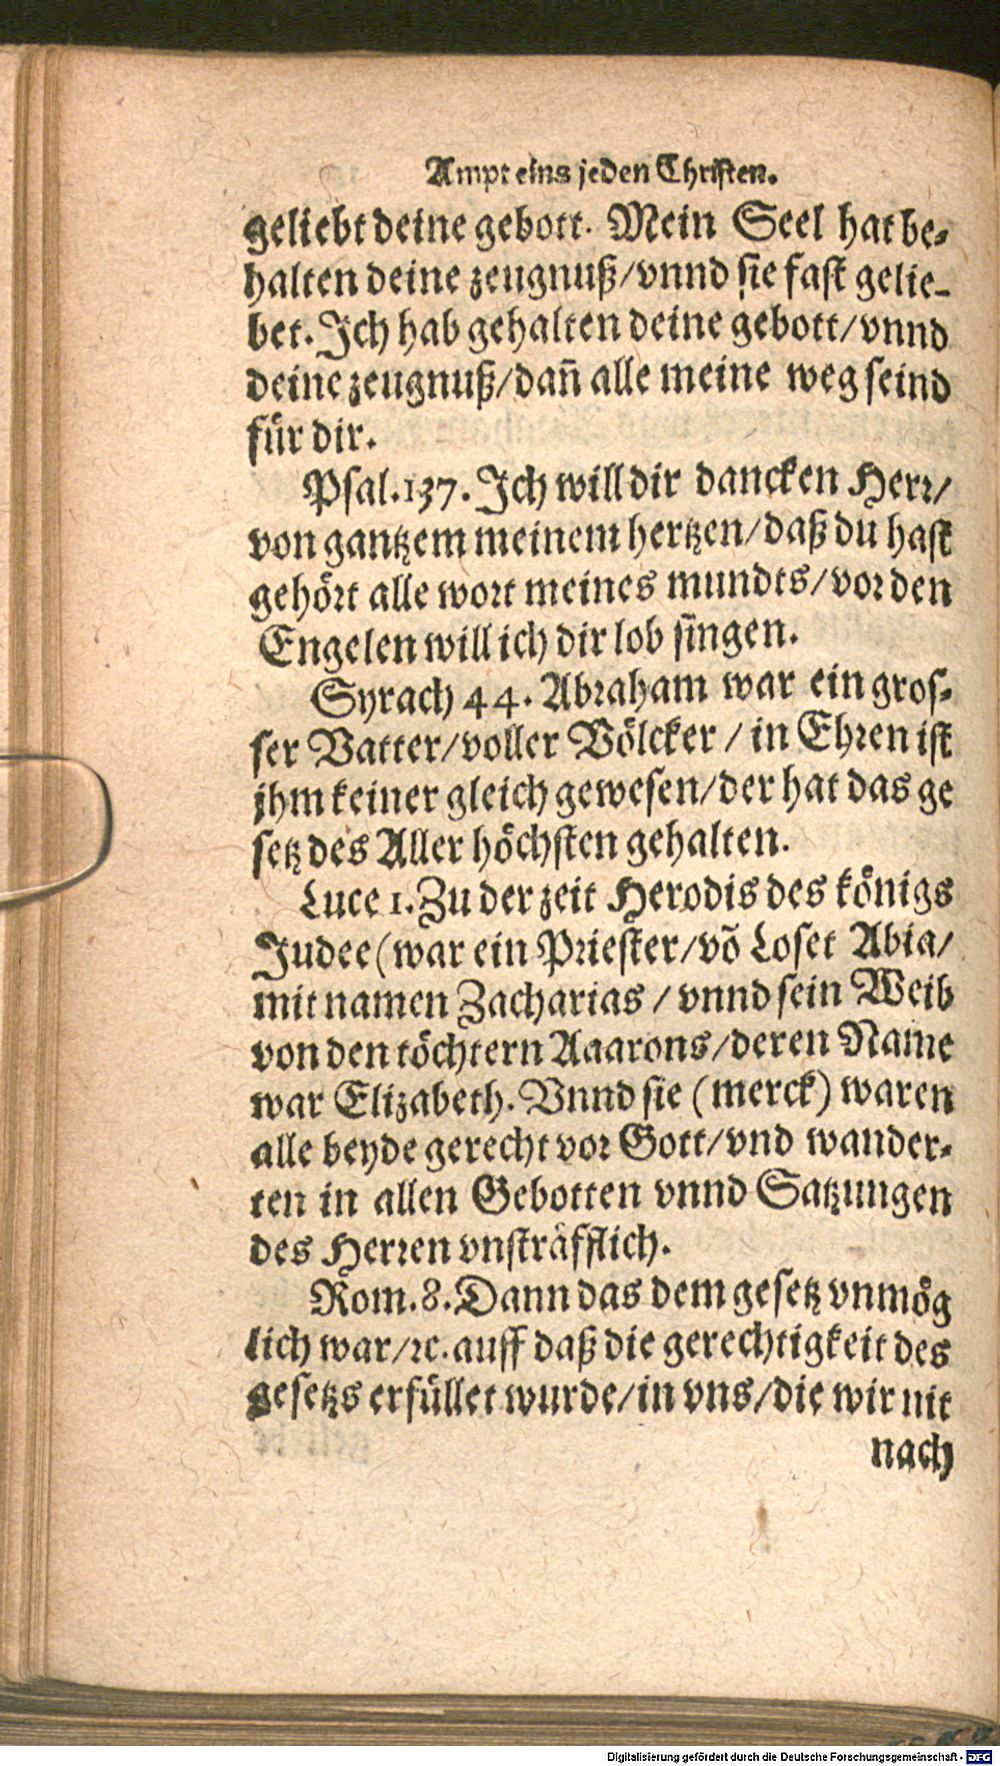 Ampt eins jeden Christen.
geliebt deine gebott. Mein Seel hat be-
halten deine zeugnuß/vnnd sie fast gelie-
bet. Ich hab gehalten deine gebott/vnnd
deine zeugnuß/dañ alle meine weg seind
für dir.
Psal.137. Ich will dir dancken Herr/
von gantzem meinem hertzen/daß du hast
gehört alle wort meines mundts/vor den
Engelen will ich dir lob singen.
Syrach 44. Abraham war ein gros-
ser Vatter/voller Völcker / in Ehren ist
jhm keiner gleich gewesen/der hat das ge
setz des Aller höchsten gehalten.
Luce 1. Zu der zeit Herodis des königs
Judee (war ein Priester/võ Loset Abia/
mit namen Zacharias / vnnd sein Weib
von den töchtern Aaarons/deren Name
war Elizabeth. Vnnd sie (merck) waren
alle beyde gerecht vor Gott/vnd wander-
ten in allen Gebotten vnnd Satzungen
des Herren vnsträfflich.
Rom.8. Dann das dem gesetz vnmög
lich war/ꝛc. auff daß die gerechtigkeit des
gesetzs erfüllet wurde/in vns/die wir nit
nach
Digitalisierung gefördert durch die Deutsche Forschungsgemeinschaft - DFG